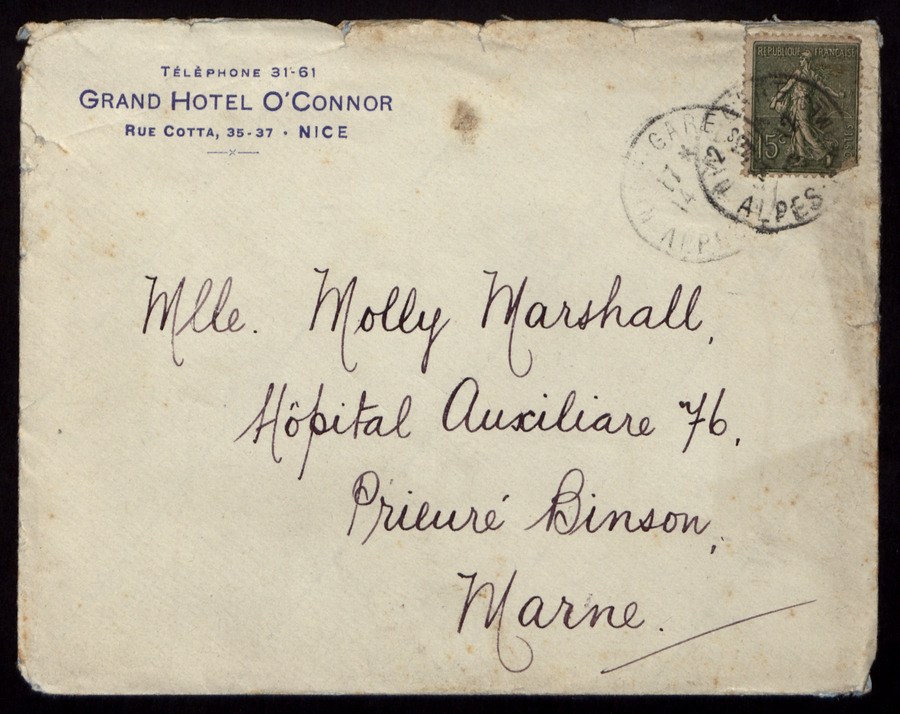 TÉLÉPHONE 31-61
GRAND HOTEL O'CONNOR
RUE COTTA, 35-37 • NICE
REPUBLIQUE FRANÇAISE
15c
GARE
ALPES
Mlle. Molly Marshall,
Hôpital Auxiliare 76,
Prieuré Binson,
Marne.